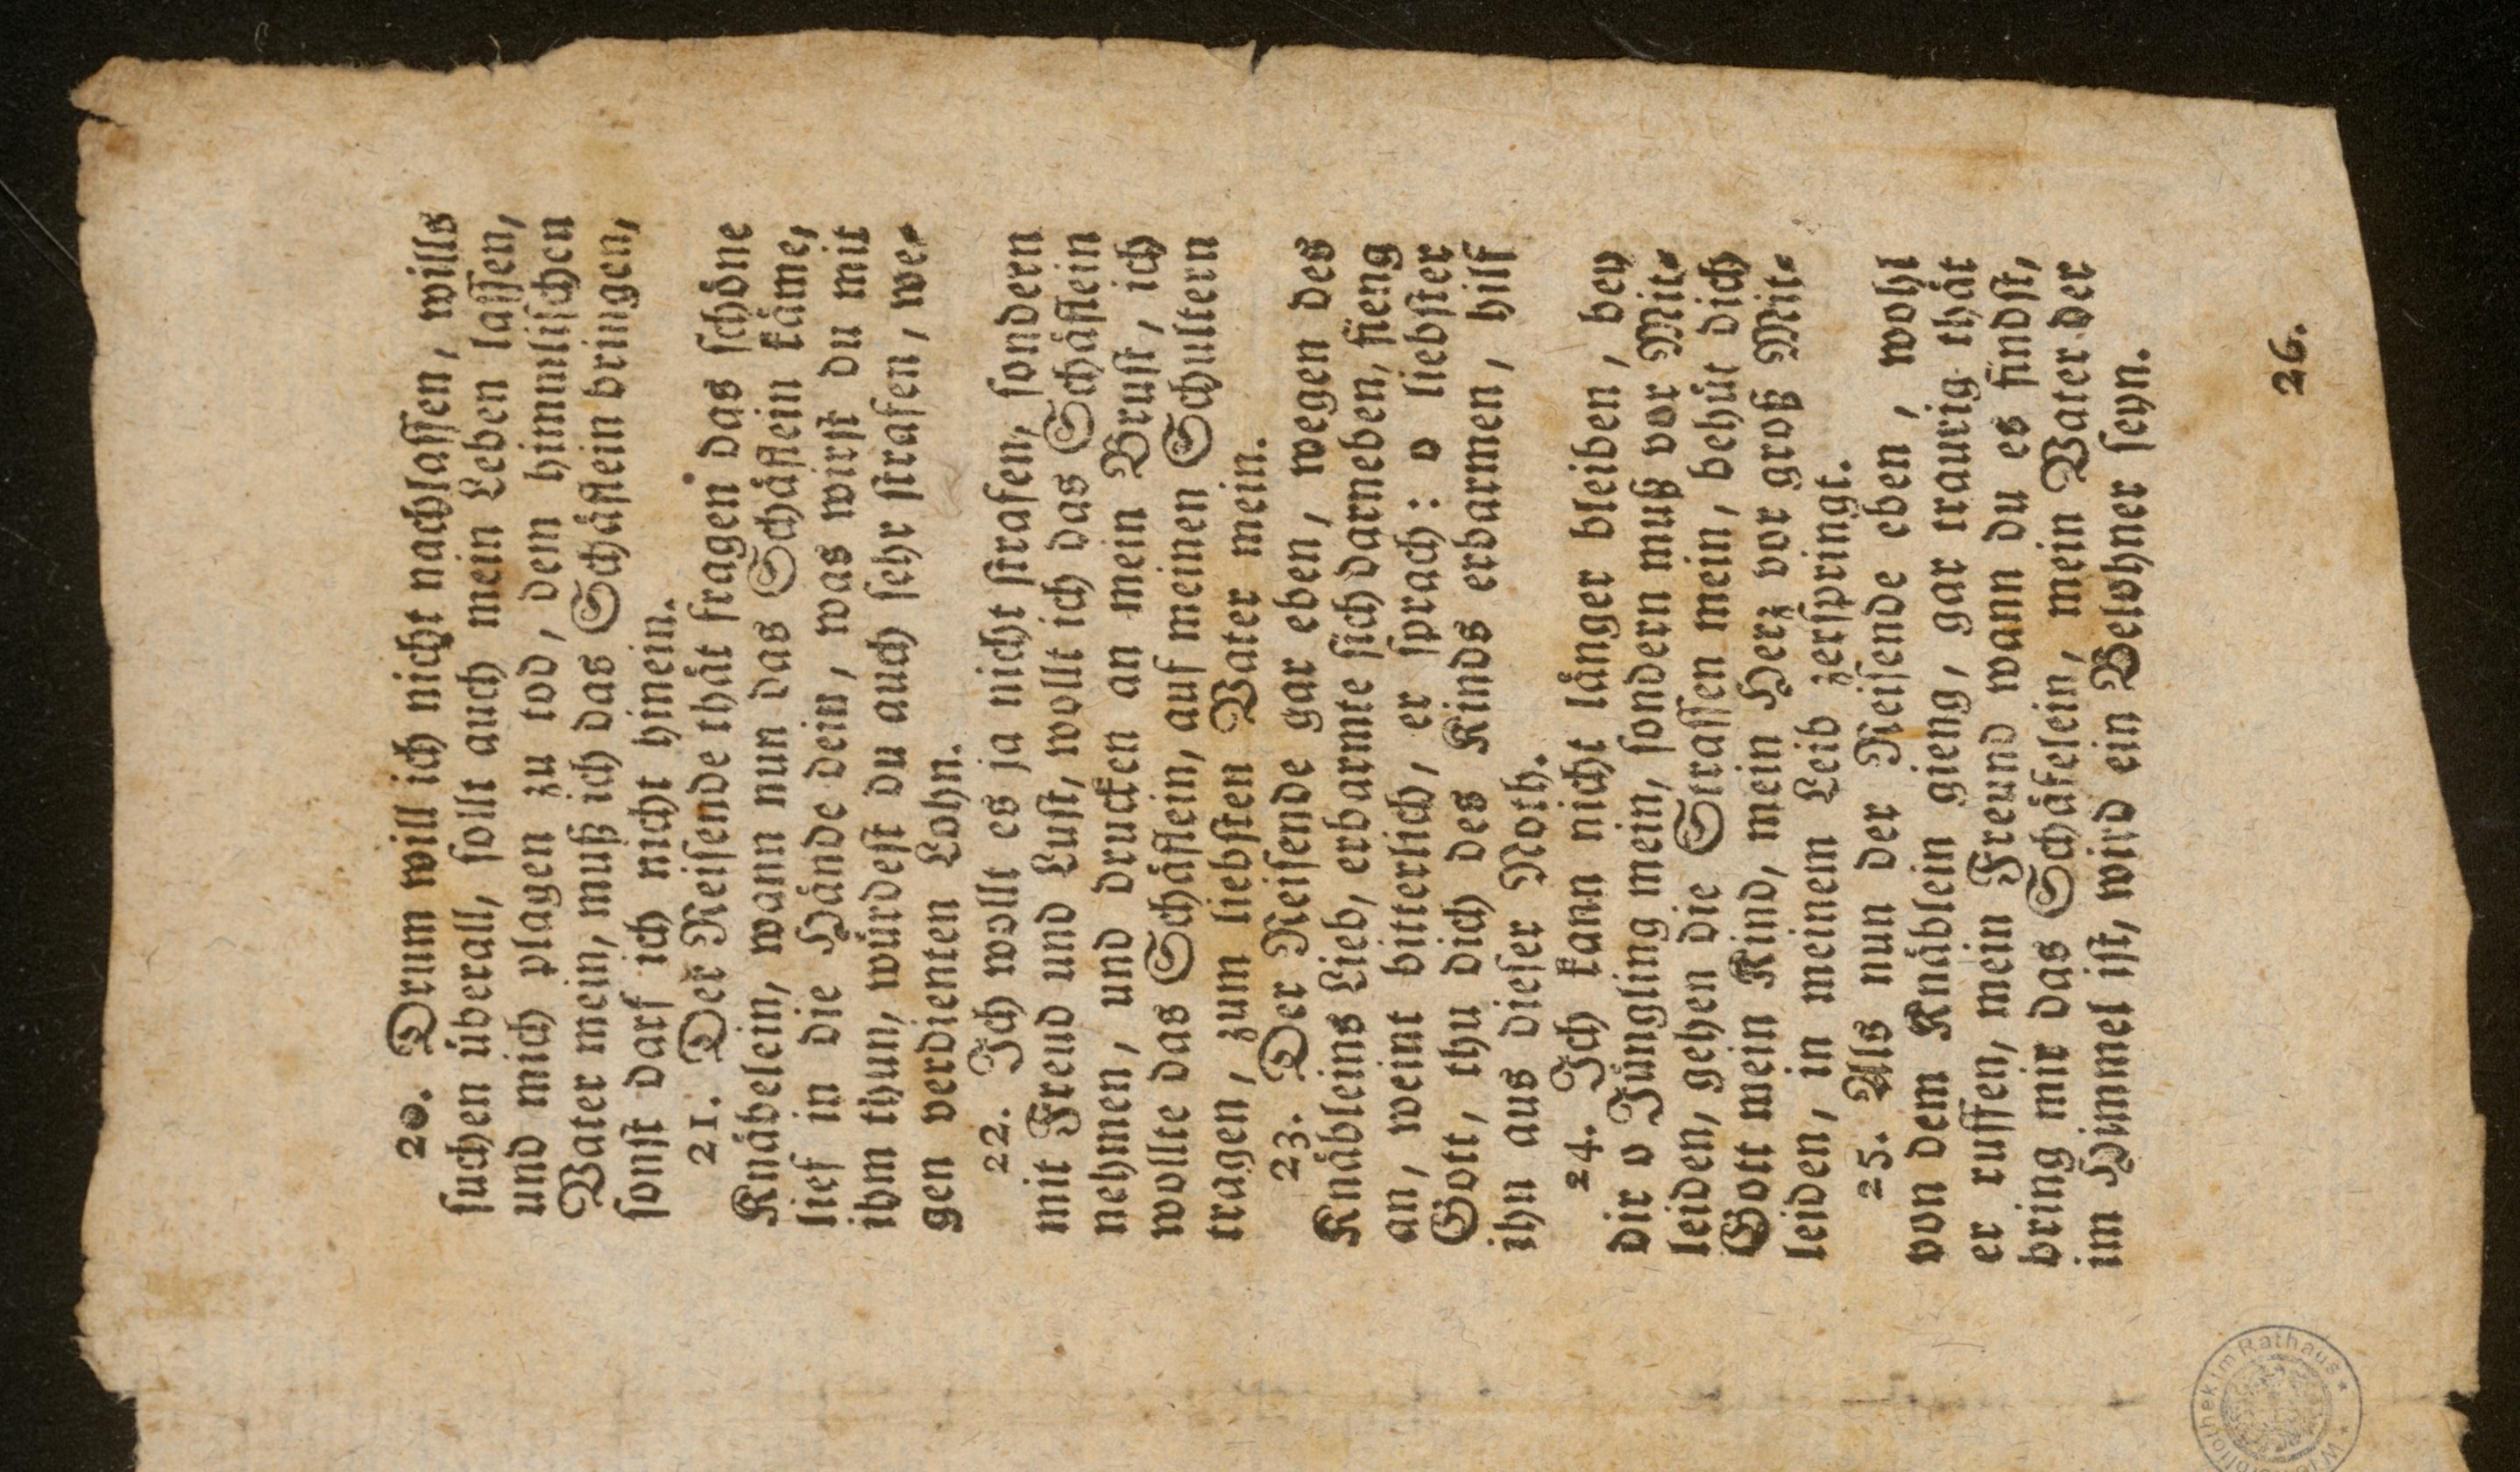 20. Drum will ich nicht nachlassen, wills
suchen überall, sollt auch mein Leben lassen,
und mich plagen zu tod, dem himmlischen
Vater mein, muß ich das Schäflein bringen,
sonst darf ich nicht hinein.
21. Der Reisende thät fragen das schöne
Knäbelein, wann nun das Schäflein käme,
lief in die Hände dein, was wirst du mit
ihm thun, würdest du auch sehr strafen, we-
gen verdienten Lohn.
22. Ich wollt es ja nicht strafen, sondern
mit Freud und Lust, wollt ich das Schäflein
nehmen, und drucken an mein Brust, ich
wollte das Schäflein, auf meinen Schultern
tragen, zum liebsten Vater mein.
23. Der Reisende gar eben, wegen des
Knäbleins Lieb, erbarmte sich darneben, fieng
an, weint bitterlich, er sprach: o liebster
Gott, thu dich des Kinds erbarmen, hilf
ihn aus dieser Noth.
24. Ich kann nicht länger bleiben, bey
dir o Jüngling mein, sondern muß vor Mit-
leiden, gehen die Strassen mein, behüt dich
Gott mein Kind, mein Herz vor groß Mit-
leiden, in meinem Leib zerspringt.
25. Als nun der Reisende eben, wohl
von dem Knäblein gieng, gar traurig thät
er ruffen, mein Freund wann du es findst,
bring mir das Schäfelein, mein Vater der
im Himmel ist, wird ein Belohner seyn.
26.
im Rathaus